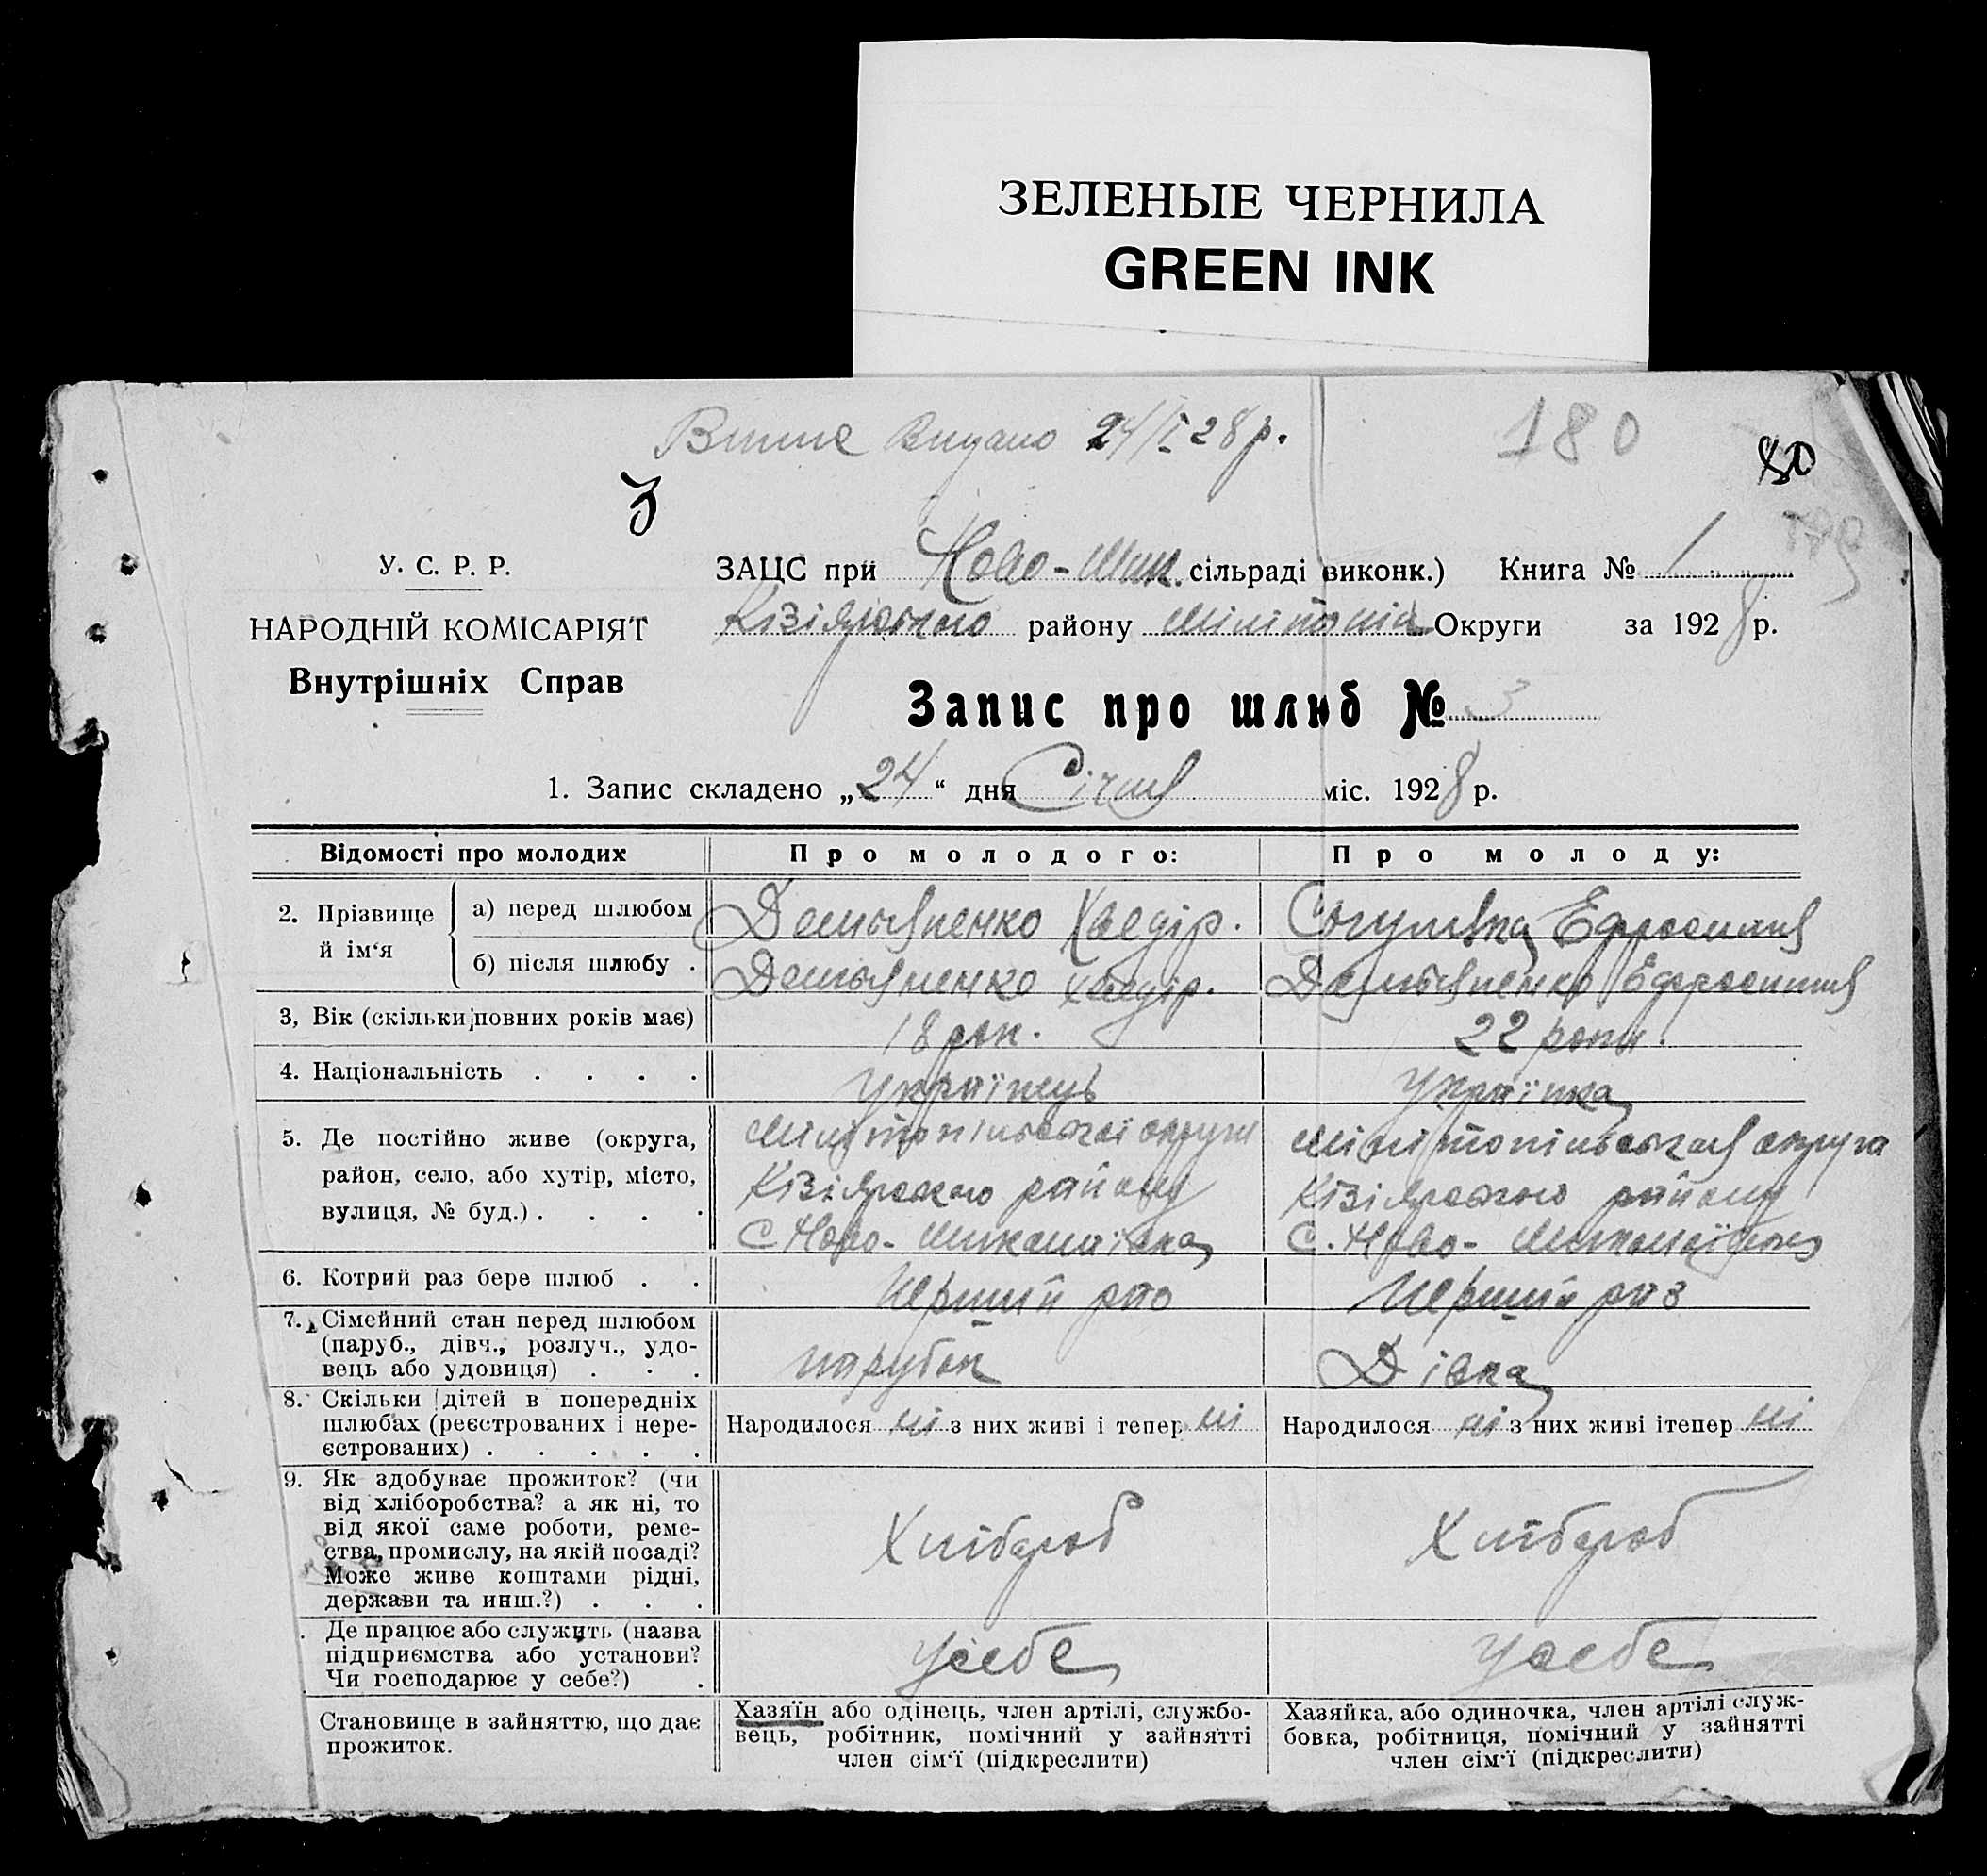 ЗЕЛЕНЫЕ ЧЕРНИЛА
GREEN INK
Видано 24/I 28 р.
180
80
3
У. С. Р. Р.
НАРОДНІЙ КОМІСАРІЯТ
Внутрішніх Справ
ЗАЦС при Ново-Мик. сільраді виконк.) Книга № 1
Кізіярського району Мілітопіл Округи за 1928 р.
Запис про шлюб № 3
1. Запис складено „24“ дня Січня міс. 1928 р.
Відомості про молодих Про молодого: Про молоду:
2. Прізвище й ім‘я
а) перед шлюбом Демьяненко Хведір. Ефросиния
б) після шлюбу . Демьяненко Хведір. Демьяненко Ефросиния
3, Вік (скільки повних років має) 18 рок. 22 роки.
4. Національність . . . . Українець Українка
5. Де постійно живе (округа, Мілітопільської округи Мілітопільская округа
район, село, або хутір, місто, Кізіярского району Кізіярского району
вулиця, № буд.) . . . . С Ново-Миколаївка С. Ново-Миколаївка
6. Котрий раз бере шлюб . . Перший раз Перший раз
7. Сімейний стан перед шлюбом
(паруб., дівч., розлуч., удо-
вець або удовиця) . . . парубок Дівка
8. Скільки дітей в попередніх
шлюбах (реєстрованих і нере- Народилося ні з них живі і тепер ні Народилося ні з них живі ітепер ні
єстрованих) . . . . .
9. Як здобуває прожиток? (чи
від хліборобства? а як ні, то
від якої саме роботи, реме- Хлібороб Хлібороб
ства, промислу, на якій посаді?
Може живе коштами рідні,
держави та инш.?) . . .
Де працює або служить (назва
підприємства або установи? Усебе Усебе
Чи господарює у себе?) .
Становище в зайняттю, що дає
прожиток.
Хазяїн або одінець, член артілі, службо-
вець, робітник, помічний у зайнятті
член сім‘ї (підкреслити)
Хазяйка, або одиночка, член артілі служ-
бовка, робітниця, помічний у зайнятті
член сім‘ї (підкреслити)